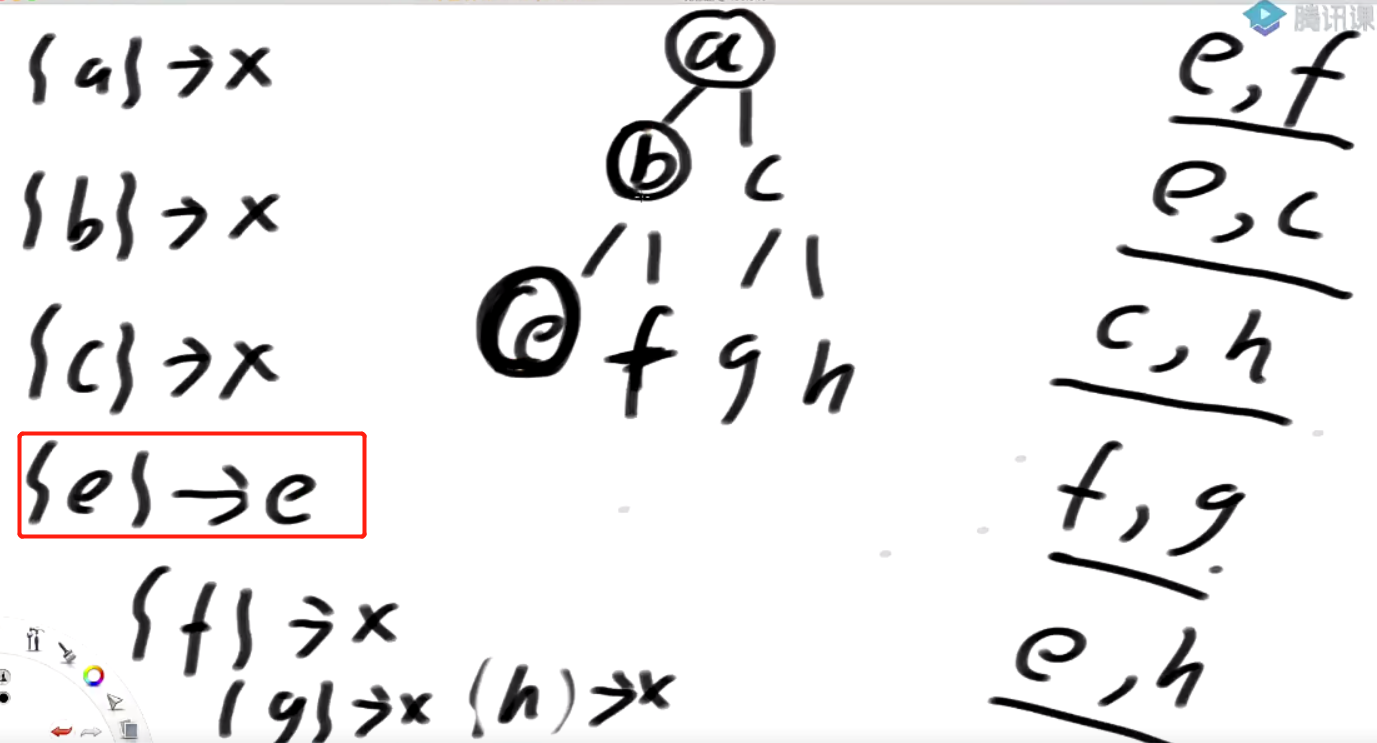 {a}→x
{b}→x
{c}→x
{e}→e
{f}→x
{g}→x {h}→x
a
b c
e f g h
腾讯课
e,f
e,c
c,h
f,g
e,h